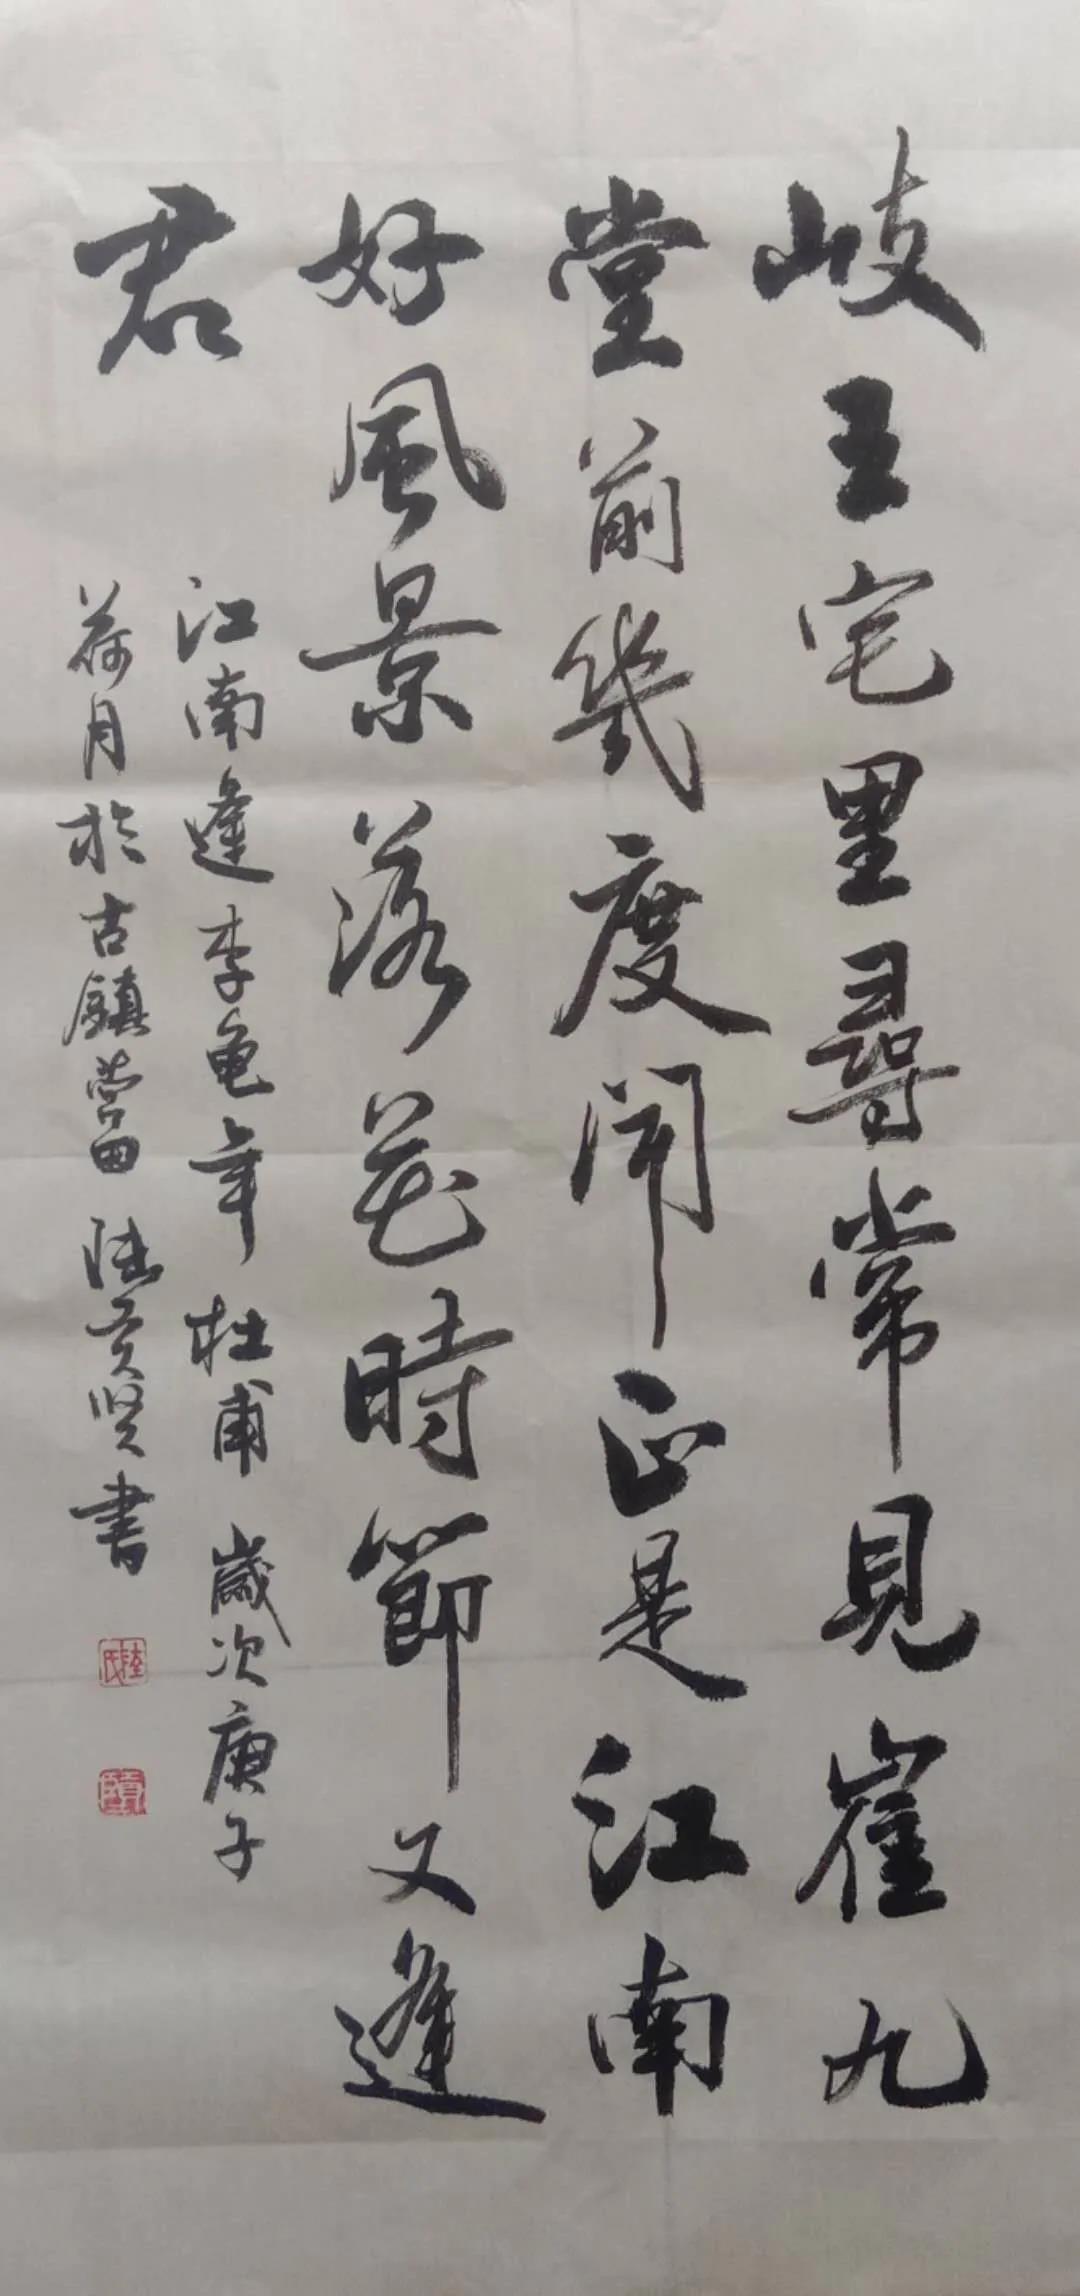 岐王宅里尋常見崔九
堂前幾度聞正是江南
好風景落花時節又逢
君
江南逢李龜年 杜甫 歲次庚子
荷月於古鎮營田 陸贤書
陸氏